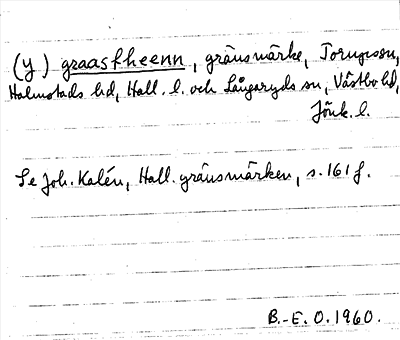 (y) graasfheenn, gränsmärke, Torupssn,
Halmstads hd, Hall. l. och Långaryds sn, Västbo hd,
Jönk. l.
Se Joh. Kalén, Hall. gränsmärken, s. 161 f.
B.-E. O. 1960.